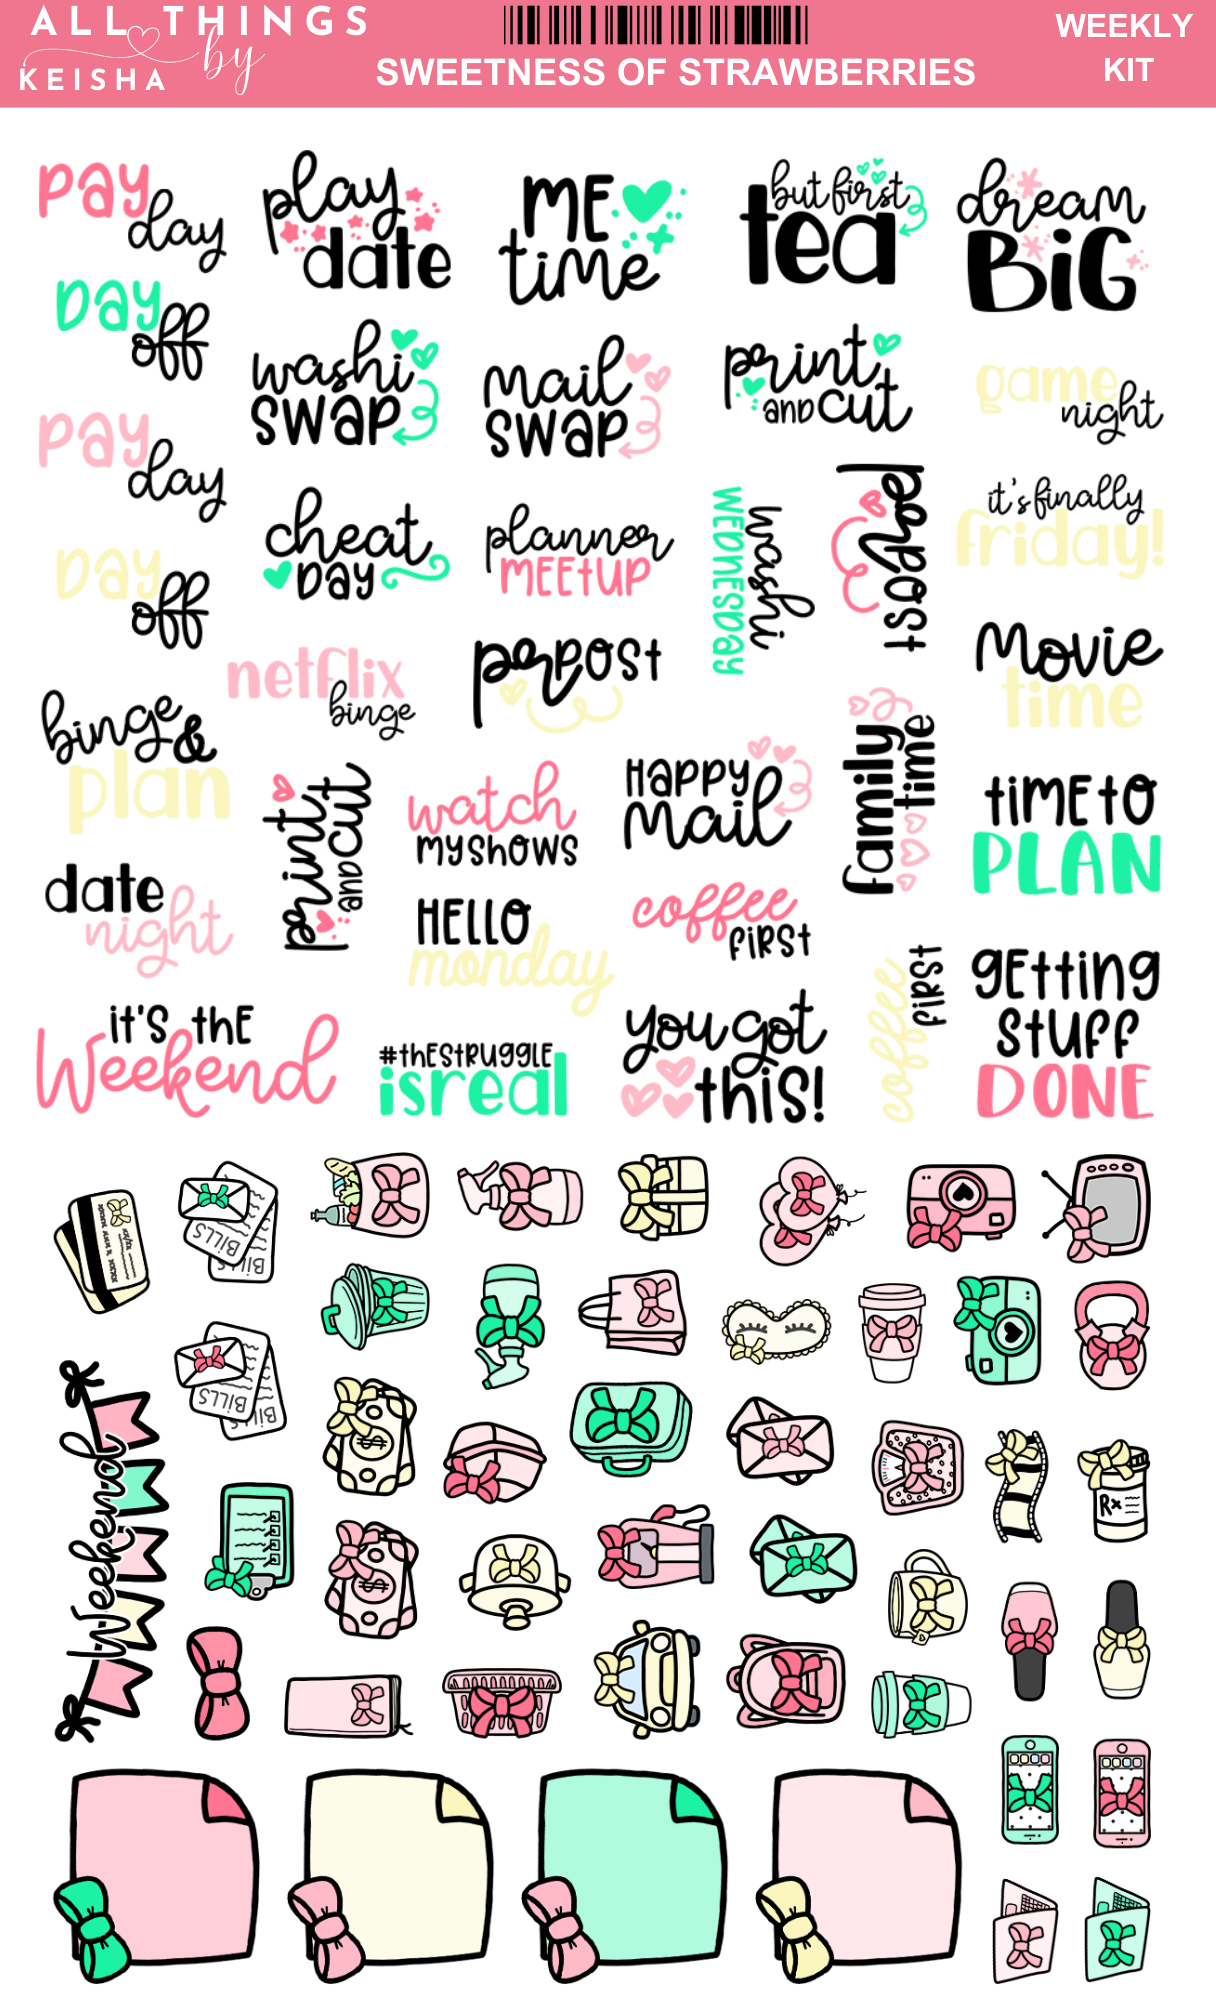 ALL THINGS
by
KEISHA
SWEETNESS OF STRAWBERRIES
WEEKLY
KIT
PAY
day
play
date
ME
time
but first
tea
dream
BiG
DAY
off
washi
SWAP
mail
SWAP
print
AND CUT
game
night
PAY
day
cheat
DAY
planner
MEEtUP
washi
WEDNESDAY
porpost
it's finally
friday!
DAY
off
netflix
binge
porpost
Movie
time
binge &
plan
print
AND CUT
watch
MY SHOWS
HAPPY
Mail
family
time
tiME tO
PLAN
date
night
HELLO
monday
coffee
FIRST
coffee
FIRST
GEtting
StUFF
DONE
it'S thE
Weekend
#thEStRUGGLE
isreal
you got
this!
BILLS
BILLS
BILLS
BILLS
Weekend
$
$
Rx